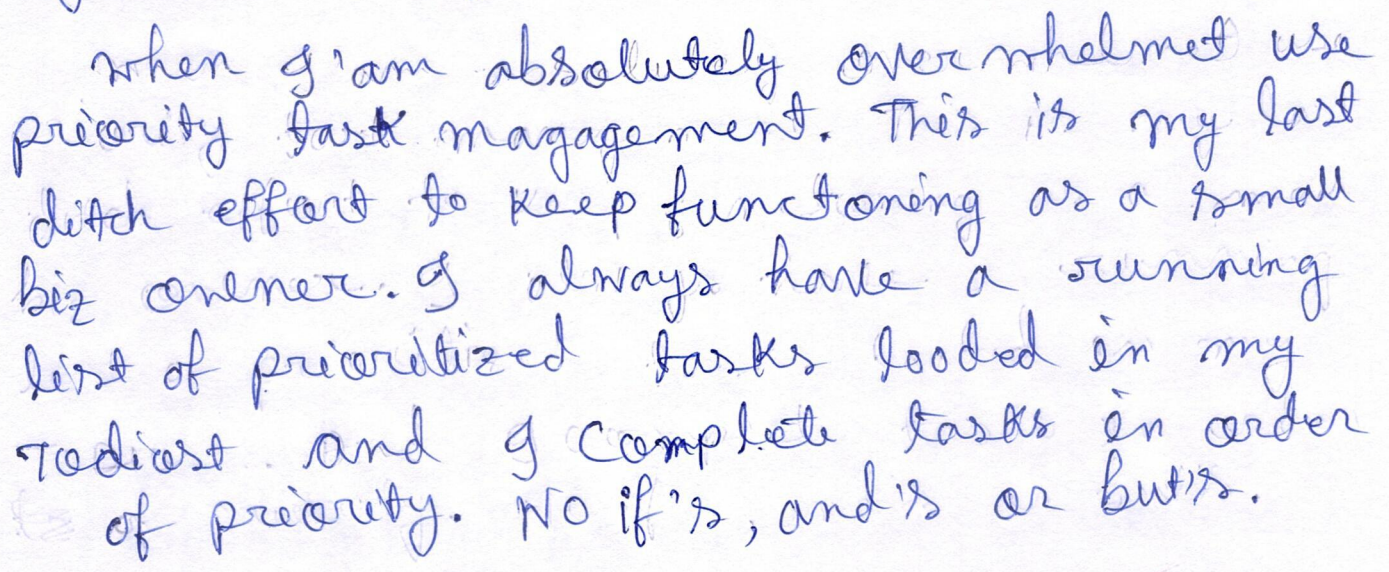 when I'am absolutely overwhelmet use
priority task magagement. This is my last
ditch effort to keep functoning as a small
biz onener. I always have a running
list of prioritized tasks looded in my
Todiost and I Complete tasks in order
of priority. NO if's, and's or but's.